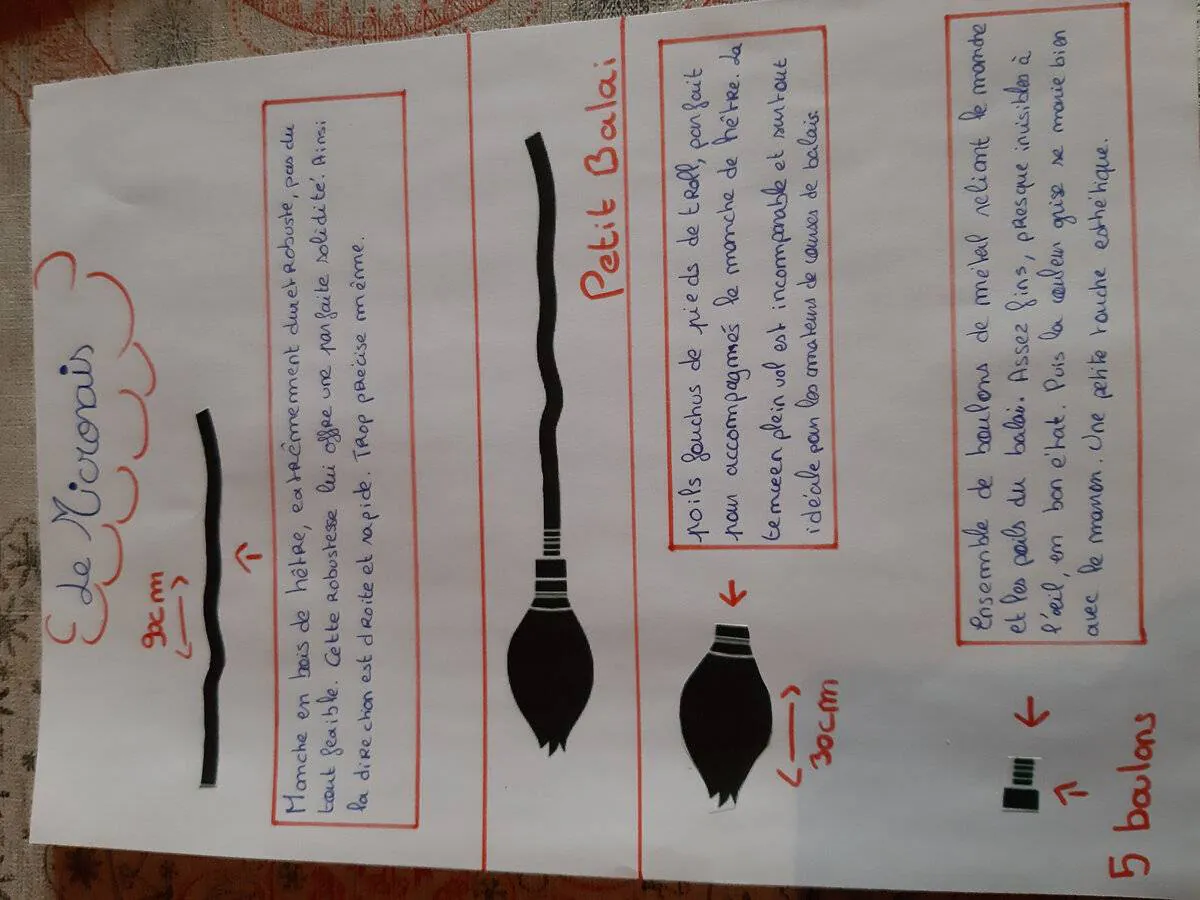 Le Micronais
90cm
Manche en bois de hêtre, extrêmement dur et robuste, pas du
tout feaible. Cette robustesse lui offre une parfaite solidité. Ainsi
la direction est droite et rapide. Trop précise même.
Petit Balai
poils fouchus de pieds de troll, parfait
pour accompagnés le manche de hêtre. La
tenue en plein vol est incomparable et surtout
idéale pour les amateurs de courses de balais.
30cm
Ensemble de boulons de métal reliant le manche
et les poils du balai. Assez fins, presque invisibles à
l'œil, en bon état. Puis la couleur grise se marie bien
avec le marron. Une petite touche esthétique.
5 boulons